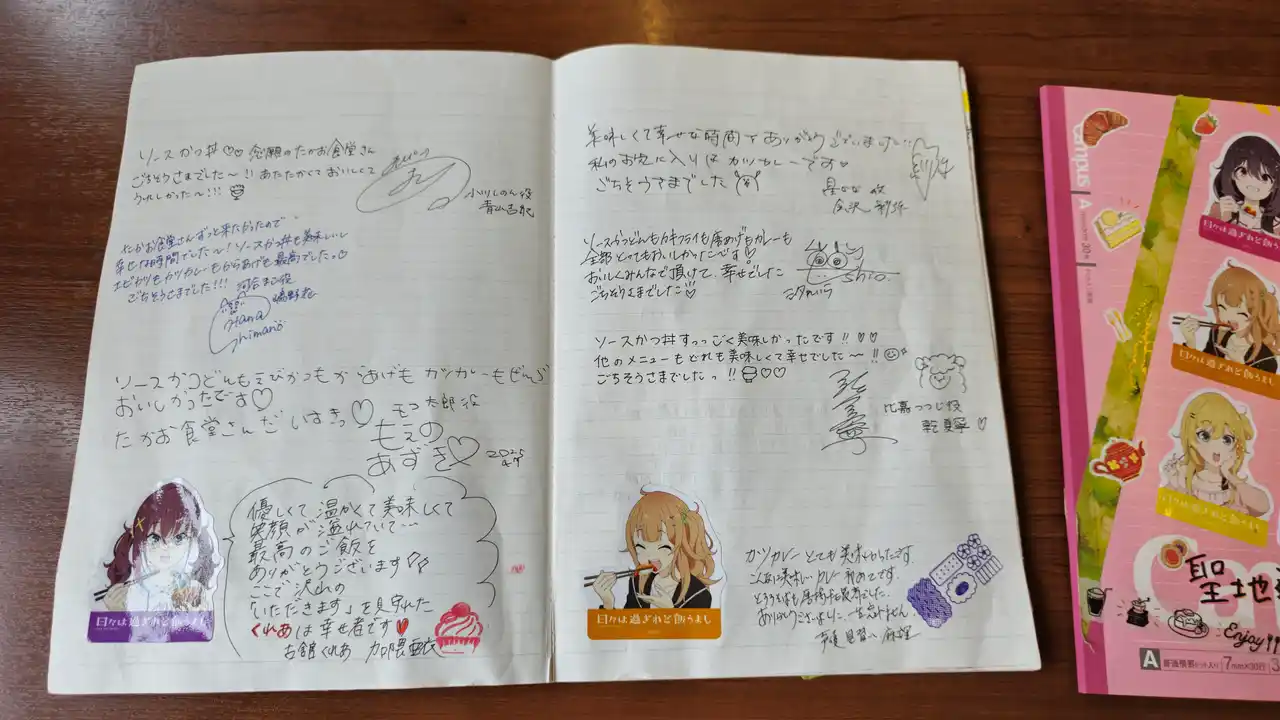 ソースかつ丼♡♡ 念願のたかお食堂さん
ごちそうさまでした〜!! あたたかくておいしくて
うれしかった〜!!!
小川しのん役
青山吉能
たかお食堂さんずっと来たかったので
幸せな時間でした〜! ソースかつ丼も美味しいし
エビカツもカツカレーもからあげも最高でしたっ♡
ごちそうさまでした!!! 河合まこ役
嶋野花
Hana
Shimano
ソースかつどんもえびかつもからあげもカツカレーもぜんぶ
おいしかったです♡
たかお食堂さんだいすきっ♡ モコ太郎役
もえの
あずき♡
2025
日々は過ぎれど飯うまし
優しくて温かくて美味しくて
笑顔が溢れていて…
最高のご飯を
ありがとうございます
ここで沢山の
「いただきます」を見守れた
くれあは幸せ者です♥
古舘くれあ 加隈亜衣
美味しくて幸せな時間でありがとうございました!!
私のお気に入りはカツカレーです♡
ごちそうさまでした
星なな役
会沢紗弥
ソースかつどんもカキフライも厚あげもカレーも
全部とてもおいしかったです!
おいしくみんなで頂けて、幸せでした
ごちそうさまでした!!
Shio.
ソースかつ丼すっっごく美味しかったです!! ♡♡
他のメニューもどれも美味しくて幸せでした〜!!
ごちそうさまでしたっ!! ♡♡
比嘉つつじ役
乾夏寧 ♡
日々は過ぎれど飯うまし
カツカレーとても美味しかったです。
こんなに美味しいカレー初めてです。
ありがとうございました。
campus
A
日々は過ぎれど飯う
日々は過ぎれど飯うまし
日々は過ぎれど飯うまし
聖地
Enjoy!!
A 普通横罫 7mm×30行